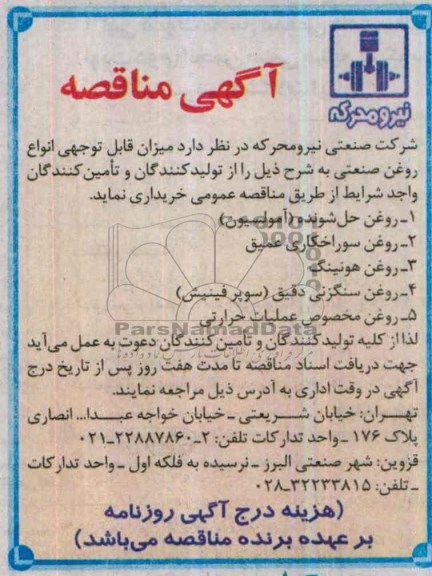 آگهی مناقصه
نیرومحرکه
شرکت صنعتی نیرومحرکه در نظر دارد میزان قابل توجهی انواع
روغن صنعتی به شرح ذیل را از تولیدکنندگان و تأمین‌کنندگان
واجد شرایط از طریق مناقصه عمومی خریداری نماید.
۱ـ روغن حل‌شونده (آمولسیون)
۲ـ روغن سوراخکاری عمیق
۳ـ روغن هونینگ
۴ـ روغن سنگزنی دقیق (سوپر فینیش)
۵ـ روغن مخصوص عملیات حرارتی
ParsNamadData
لذا از کلیه تولیدکنندگان و تأمین‌کنندگان دعوت به عمل می‌آید
جهت دریافت اسناد مناقصه تا مدت هفت روز پس از تاریخ درج
آگهی در وقت اداری به آدرس ذیل مراجعه نمایند.
تهـران: خیابان شـریعتی ـ خیابان خواجه عبـدا... انصاری
پلاک ۱۷۶ ـ واحد تدارکات تلفن: ۲ـ۲۲۸۸۷۸۶۰ـ۰۲۱
قزوین: شهر صنعتی البرز ـ نرسیده به فلکه اول ـ واحد تدارکات
ـ تلفن: ۳۲۲۳۳۸۱۵ـ۰۲۸
(هزینه درج آگهی روزنامه
بر عهده برنده مناقصه می‌باشد)